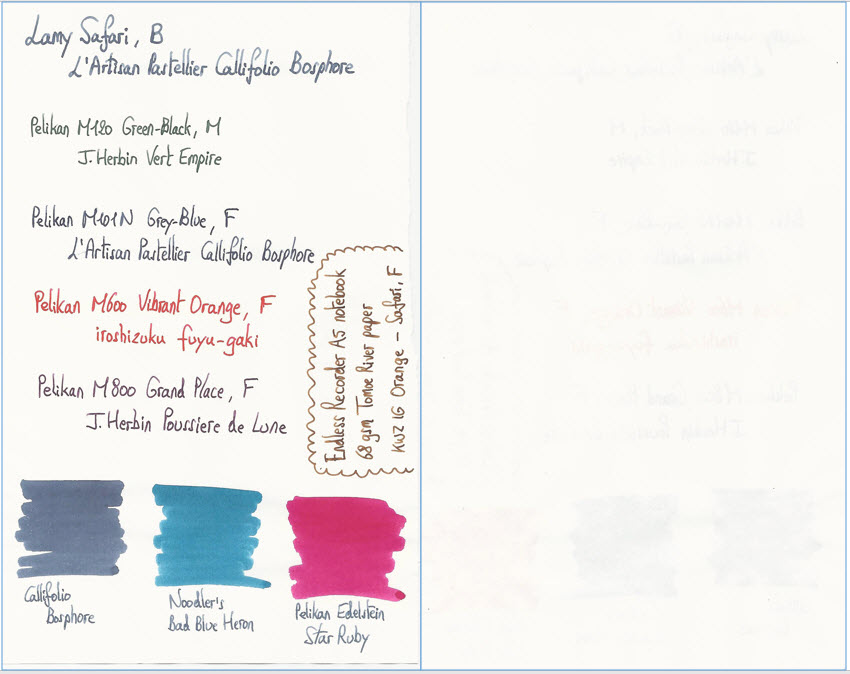 Lamy Safari, B
L'Artisan Pastellier Callifolio Bosphore
Pelikan M120 Green-Black, M
J. Herbin Vert Empire
Pelikan M101N Grey-Blue, F
L'Artisan Pastellier Callifolio Bosphore
Pelikan M600 Vibrant Orange, F
iroshizuku fuyu-gaki
Pelikan M800 Grand Place, F
J. Herbin Poussiere de Lune
Endless Recorder A5 notebook
68 gsm Tomoe River paper
KWZ IG Orange – Safari, F
Callifolio
Bosphore
Noodler's
Bad Blue Heron
Pelikan Edelstein
Star Ruby